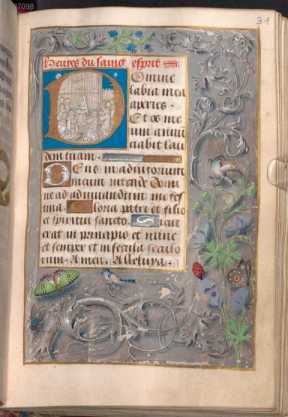 31
Heures du saint esprit
Domine
labia mea
aperies.
Et os me
um annun
ciabit lau
dem tuam.
Deus in adiutorium
meum intende Domi
ne ad adiuvandum me fes
tina. Gloria patri et filio
et spiritui sancto. Sicut
erat in principio et nunc
et semper et in secula seculo
rum. Amen. Alleluya.